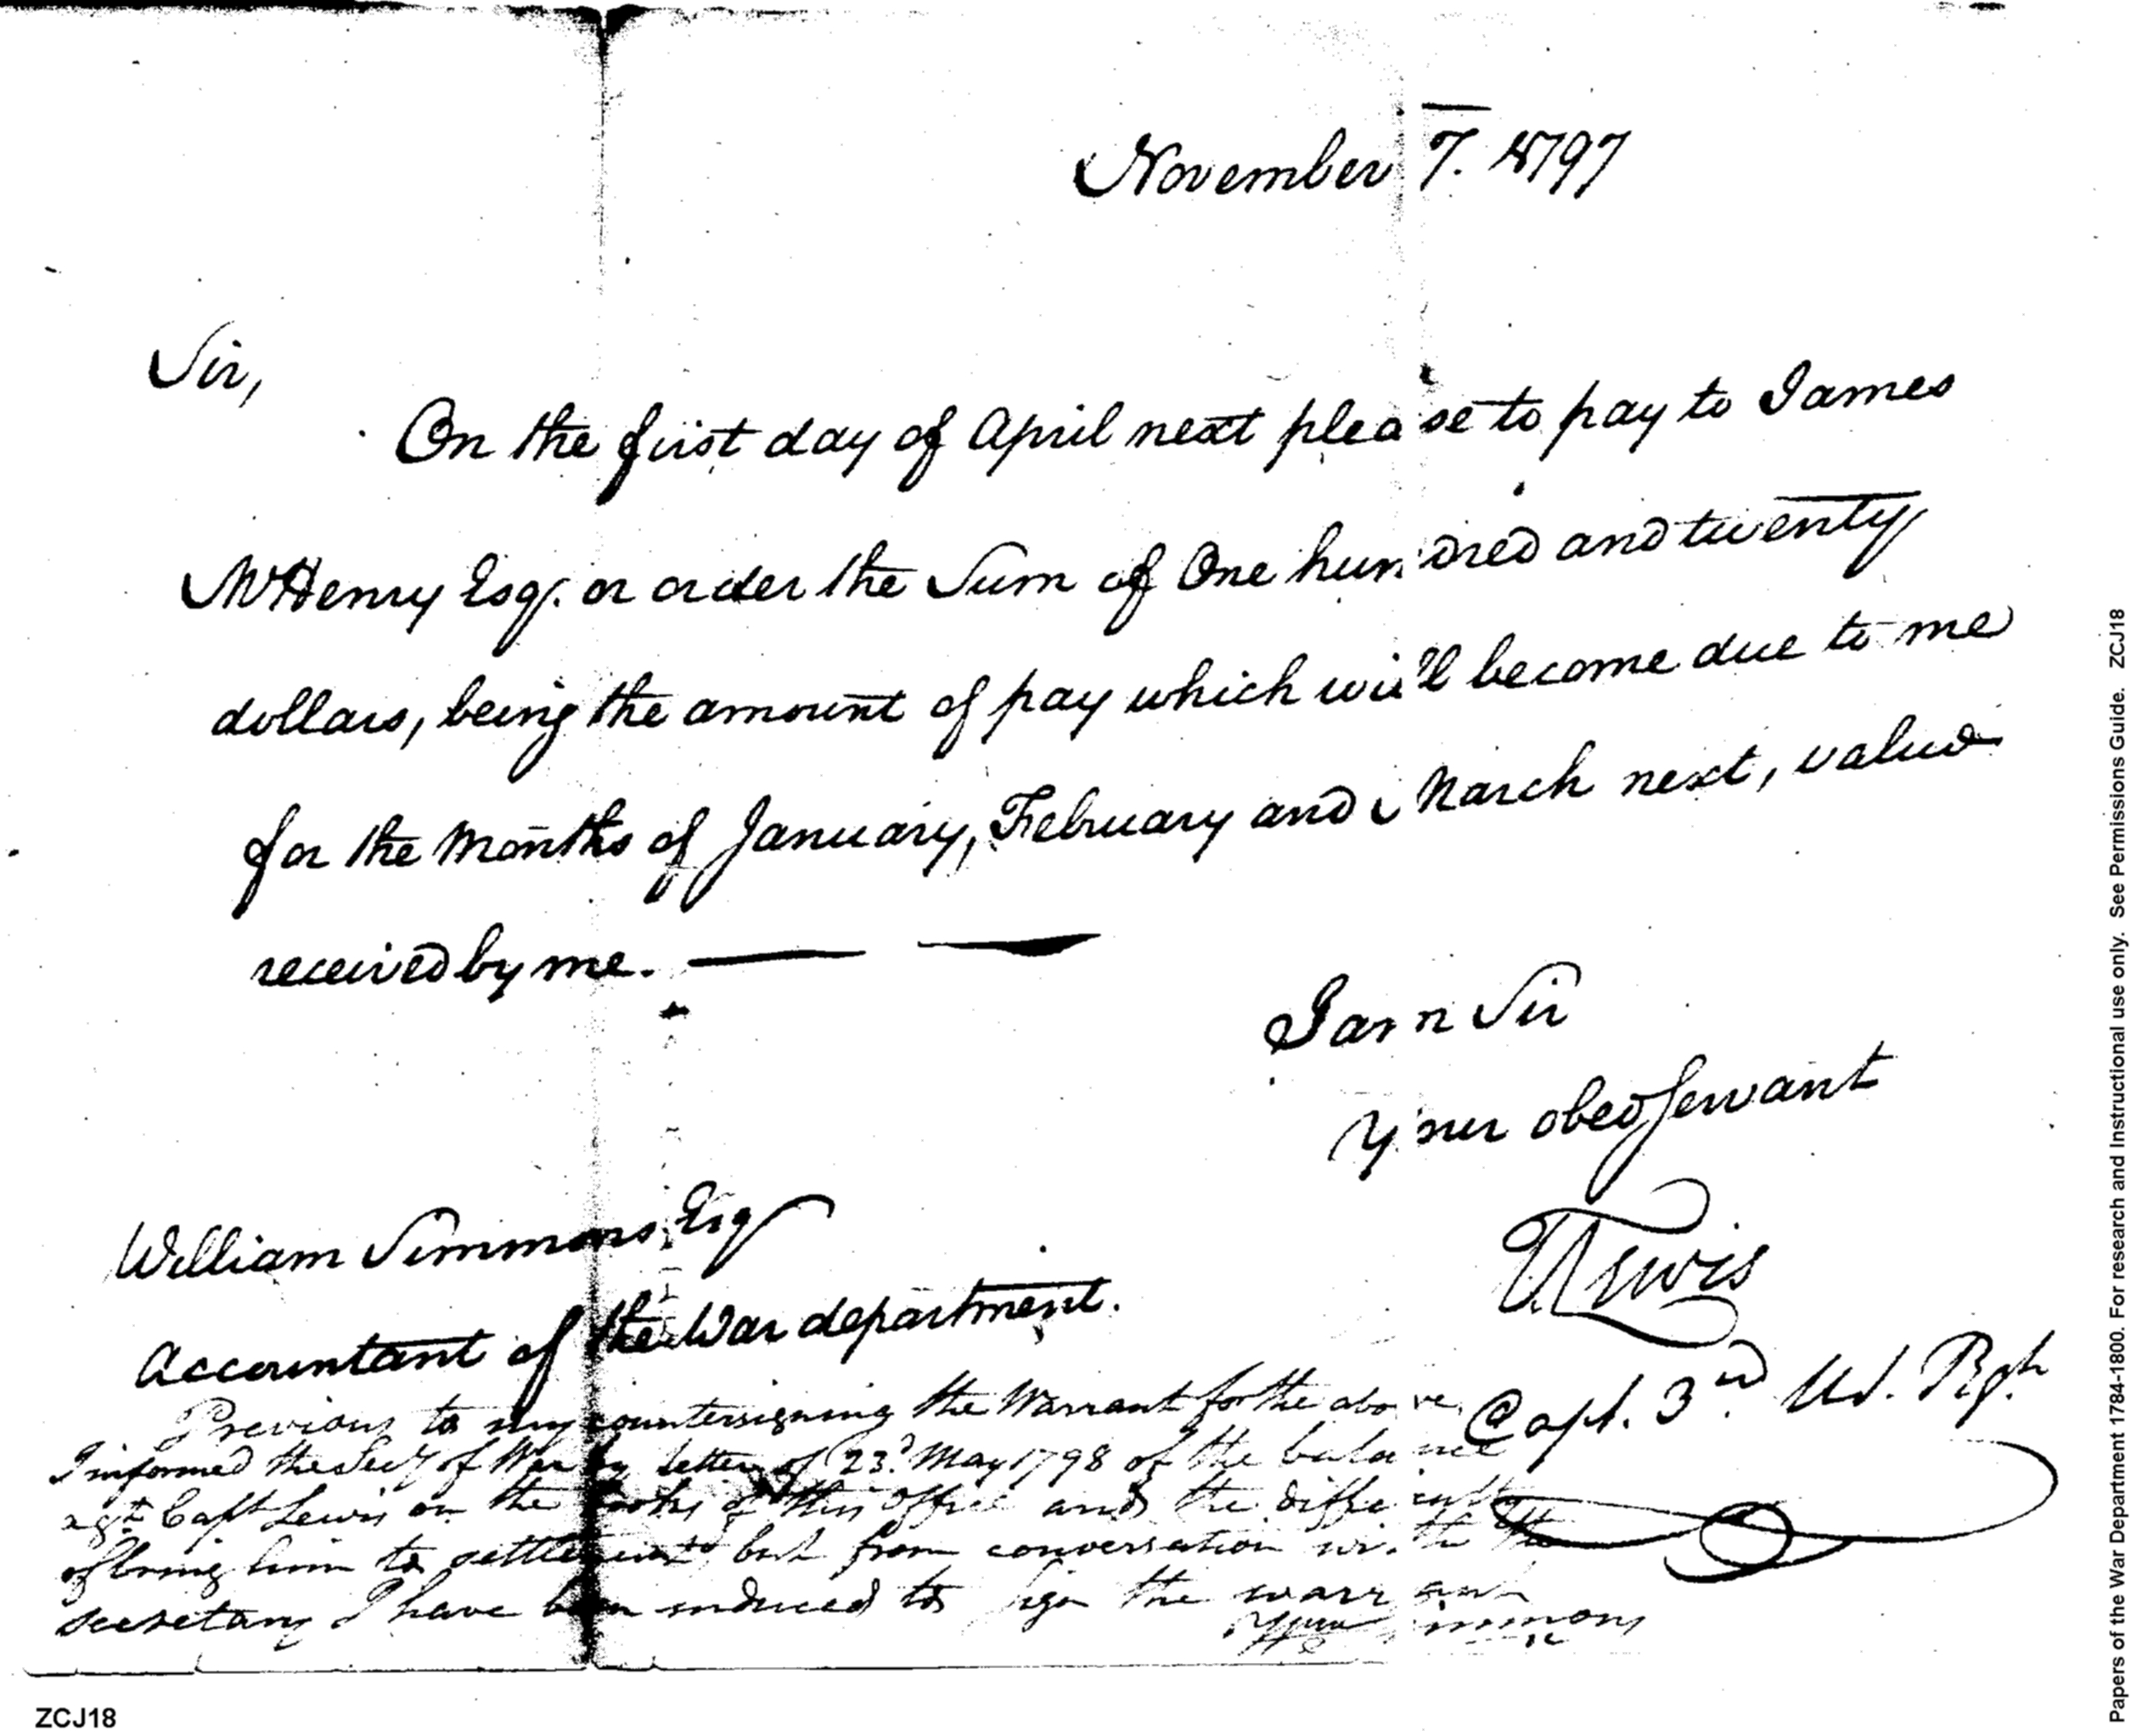 November 7. 1797
Sir,
On the first day of April next please to pay to James
McHenry Esqr. or order the Sum of One hundred and twenty
dollars, being the amount of pay which will become due to me
for the Months of January, February and March next, value
received by me.
I am Sir
Your obed Servant
Lewis
Capt. 3rd U.S. Rgt.
William Simmons, Esq
Accountant of the War department.
Previous to my countersigning the Warrant for the above
I informed the Secy of War by letter of 23d. May 1798 of the balance
agt Capt Lewis on the books of this Office and the difficulty
of bring him to settlement but from conversation with the
secretary I have been induced to sign the warrant
Wm Simmons
Papers of the War Department 1784-1800. For research and Instructional use only. See Permissions Guide. ZCJ18
ZCJ18